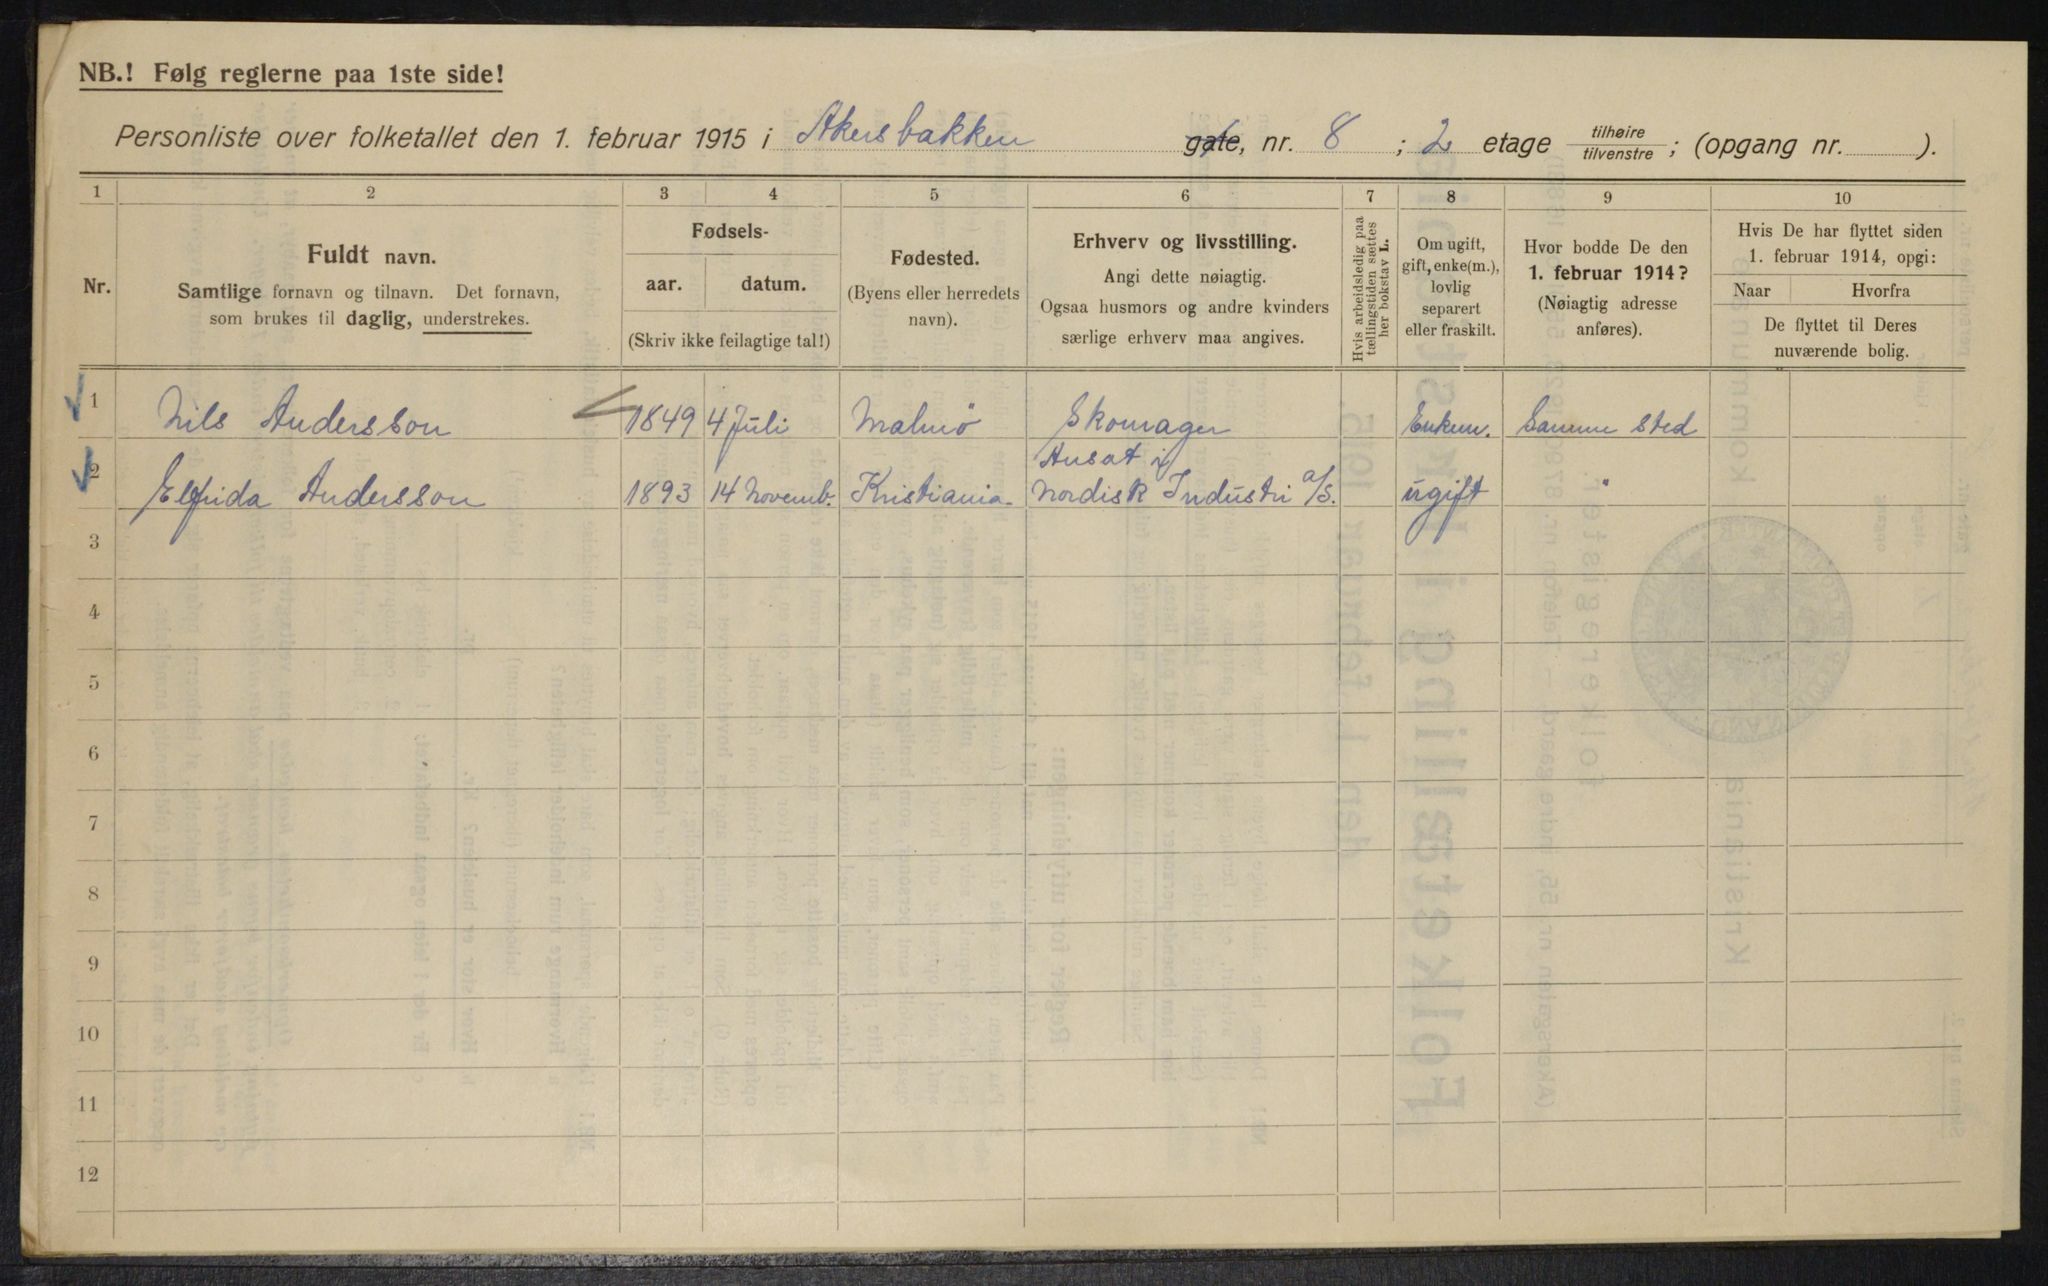 NB.! Følg reglerne paa 1ste side!
Personliste over folketallet den 1. februar 1915 i Akersbakken gate, nr. 8 ; 2 etage tilhøire tilvenstre ; (opgang nr. ).
1 2 3 4 5 6 7 8 9 10
Nr.
Fuldt navn.
Samtlige fornavn og tilnavn. Det fornavn,
som brukes til daglig, understrekes.
Fødsels-
aar. datum.
(Skriv ikke feilagtige tal!)
Fødested.
(Byens eller herredets
navn).
Erhverv og livsstilling.
Angi dette nøiagtig.
Ogsaa husmors og andre kvinders
særlige erhverv maa angives.
Hvis arbeidsledig paa
tællingstiden sættes
her bokstav L.
Om ugift,
gift, enke(m.),
lovlig
separert
eller fraskilt.
Hvor bodde De den
1. februar 1914?
(Nøiagtig adresse
anføres).
Hvis De har flyttet siden
1. februar 1914, opgi:
Naar Hvorfra
De flyttet til Deres
nuværende bolig.
1 Nils Andersson 1849 4 Juli Malmö Skomager Enkem. Samme sted
2 Elfrida Andersson 1893 14 Novemb. Kristiania Ansat i
Nordisk Industri a/s. ugift "
3
4
5
6
7
8
9
10
11
12